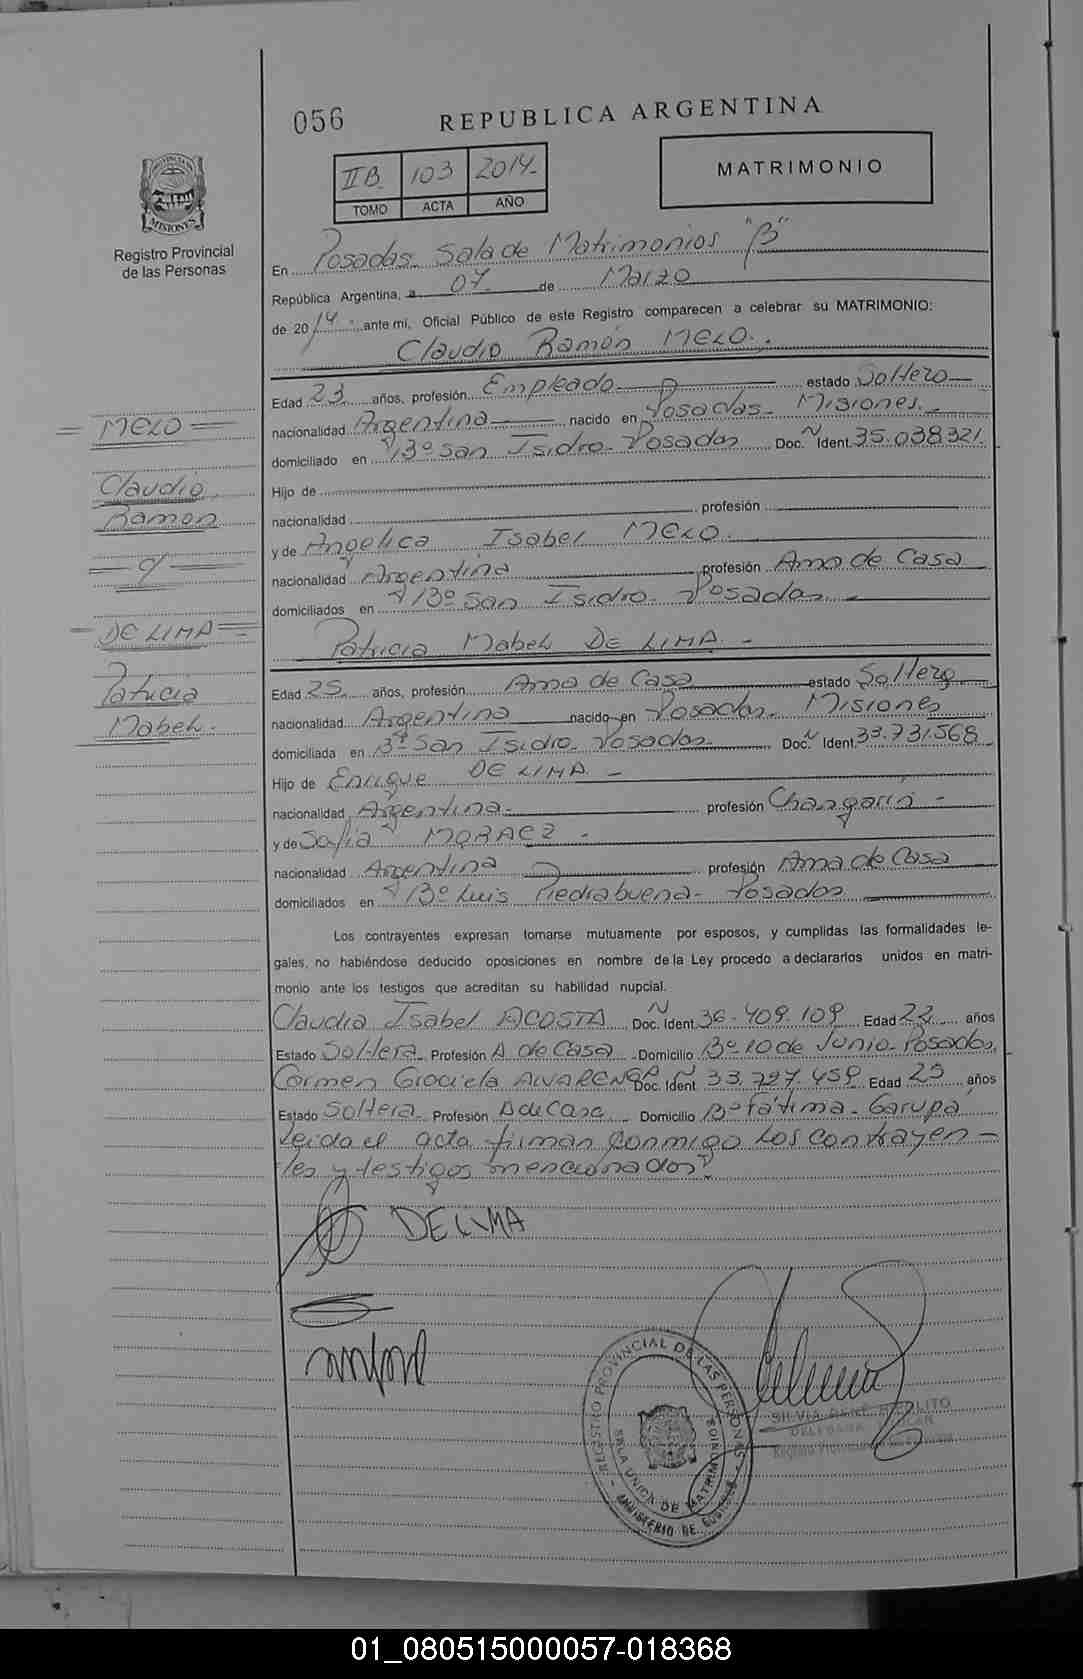 056
REPUBLICA ARGENTINA
MATRIMONIO
II B. 103 2014.
TOMO ACTA AÑO
PROVINCIA DE MISIONES
Registro Provincial
de las Personas
En Posadas. Sala de Matrimonios "B"
República Argentina, a 07. de Marzo
de 2014. ante mi, Oficial Público de este Registro comparecen a celebrar su MATRIMONIO:
Claudio Ramón MELO.
Edad 23 años, profesión Empleado estado Soltero
nacionalidad Argentina nacido en Posadas. Misiones.
domiciliado en Bº San Isidro. Posadas Doc. Ident. 35.038.321.
Hijo de
nacionalidad profesión
y de Angelica Isabel MELO.
nacionalidad Argentina profesión Ama de Casa
domiciliados en Bº San Isidro. Posadas.
Patricia Mabel DE LIMA.-
Edad 25 años, profesión Ama de Casa estado Soltera
nacionalidad Argentina nacido en Posadas. Misiones
domiciliada en Bº San Isidro. Posadas. Doc. Ident. 33.731.568
Hijo de Enrique DE LIMA.-
nacionalidad Argentina. profesión Changarín-
y de Sofia -
nacionalidad Argentina profesión Ama de Casa
domiciliados en Bº Luis Piedrabuena- Posadas
Los contrayentes expresan tomarse mutuamente por esposos, y cumplidas las formalidades le-
gales, no habiéndose deducido oposiciones en nombre de la Ley procedo a declararlos unidos en matri-
monio ante los testigos que acreditan su habilidad nupcial.
Claudia Isabel ACOSTA Doc. Ident. 36.409.109 Edad 22 años
Estado Soltera Profesión A. de Casa Domicilio Bº 10 de Junio. Posadas.
Carmen Graciela ALVARENGA Doc. Ident 33.727.459 Edad 25 años
Estado Soltera Profesión A de Casa Domicilio Bº Fátima. Garupá
Leida el acta firman conmigo los contrayen-
tes y testigos mencionados.
MELO
Claudio
Ramon
c/
DE LIMA
Patricia
Mabel.
DE LIMA
REGISTRO PROVINCIAL DE LAS PERSONAS
SALA UNICA DE MATRIMONIOS
MINISTERIO DE GOBIERNO
SILVIA RENE HIPOLITO
01_080515000057-018368